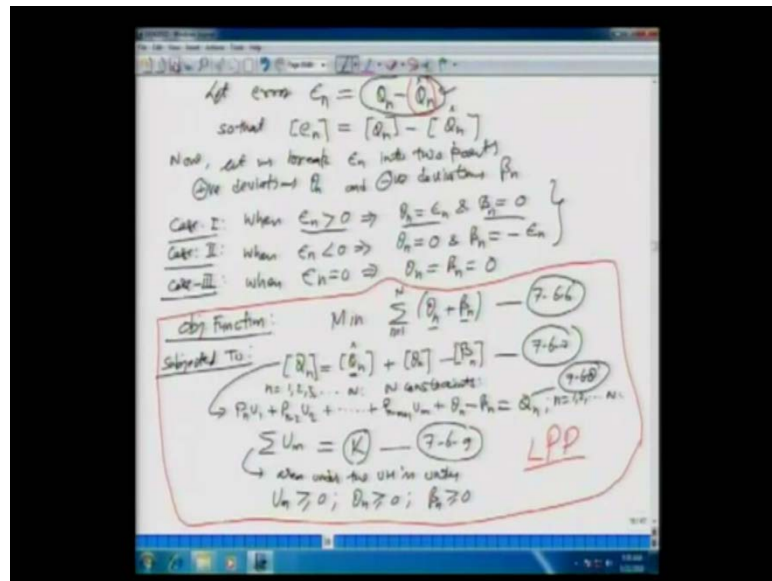 Let error ϵn = Qn - Q̂n
so that [ϵn] = [Qn] - [Q̂n]
Now, let us break ϵn into two parts,
⊕ve deviations θn and ⊖ve deviations βn
Case-I: when ϵn > 0 ⇒ θn = ϵn & βn = 0
Case-II: when ϵn < 0 ⇒ θn = 0 & βn = - ϵn
Case-III: when ϵn = 0 ⇒ θn = βn = 0
Obj Function: Min Σ (θn + βn) — 7-6-6
Subjected To: [Qn] = [Q̂n] + [θn] - [βn] — 7-6-7
n = 1, 2, 3, ... N: N constraints:
Pn U1 + Pn-1 U2 + ...... + Pn-m+1 Um + θn - βn = Qn, n = 1, 2, ... N: 7-6-8
Σ Um = K — 7-6-9
LPP
area under the UH is unity
Un ≥ 0; θn ≥ 0; βn ≥ 0